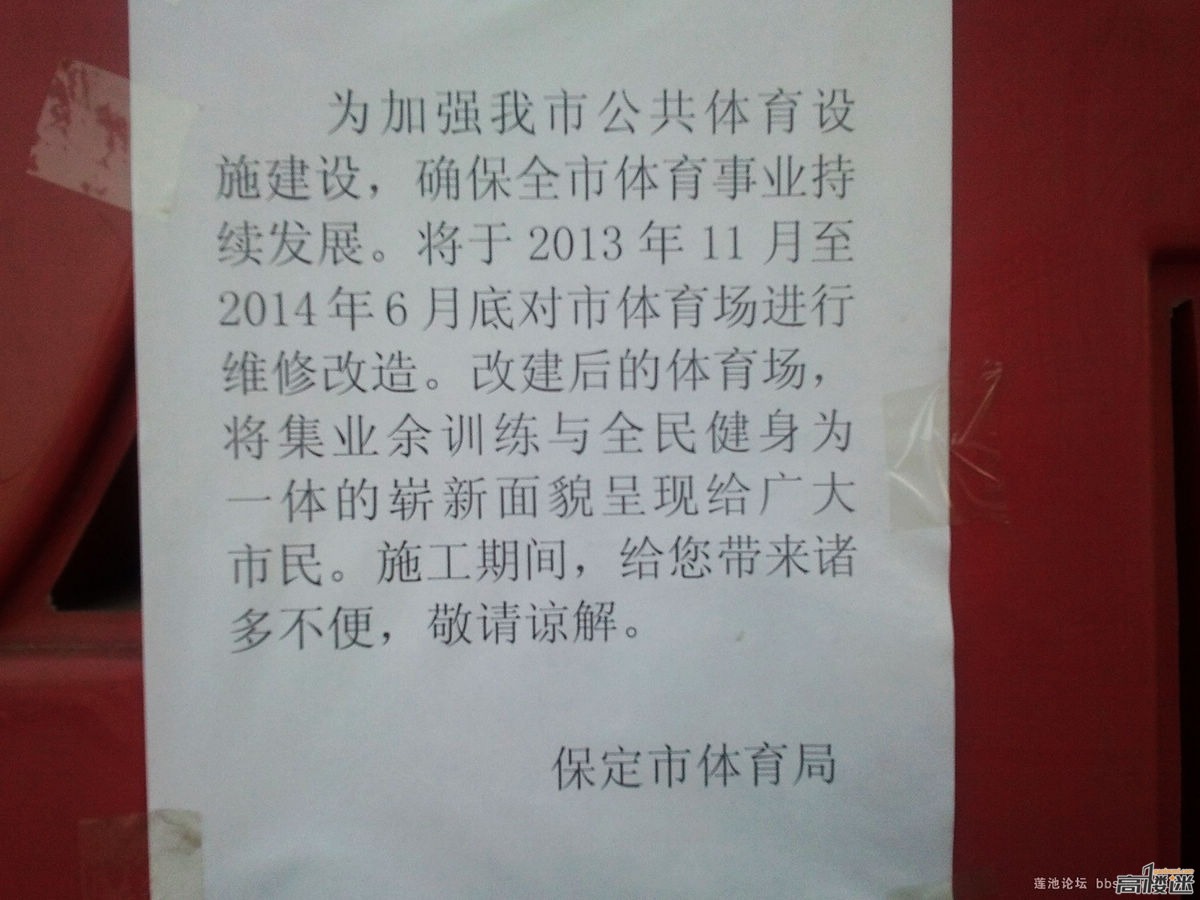 为加强我市公共体育设
施建设，确保全市体育事业持
续发展。将于 2013 年 11 月至
2014年6月底对市体育场进行
维修改造。改建后的体育场，
将集业余训练与全民健身为
一体的崭新面貌呈现给广大
市民。施工期间，给您带来诸
多不便，敬请谅解。
保定市体育局
莲池论坛 bbs
高楼迷